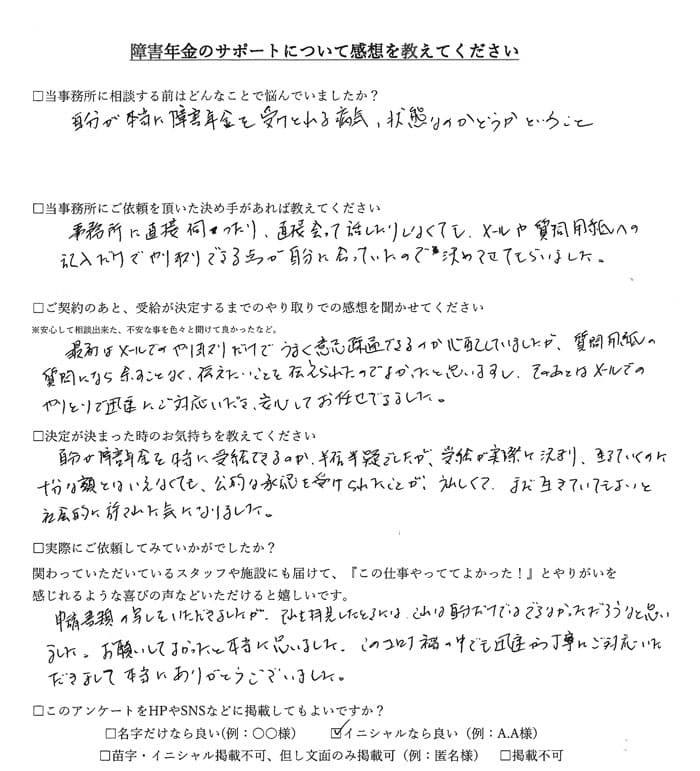 障害年金のサポートについて感想を教えてください
□当事務所に相談する前はどんなことで悩んでいましたか？
自分が本当に障害年金を受けとれる病気、状態なのかどうかということ
□当事務所にご依頼を頂いた決め手があれば教えてください
事務所に直接伺ったり、直接会って話したりしなくても、メールや質問用紙への
記入だけでやり取りできる点が自分に合っていたので決めさせてもらいました。
□ご契約のあと、受給が決定するまでのやり取りでの感想を聞かせてください
※安心して相談出来た、不安な事を色々と聞けて良かったなど。
最初はメールでのやりとりだけでうまく意思疎通できるのか心配していましたが、質問用紙の
質問になら余すことなく、伝えたいことを伝えられたのでよかったと思いますし、そのあとはメールでの
やりとりで迅速にご対応いただき、安心してお任せできました。
□決定が決まった時のお気持ちを教えてください
自分が障害年金を本当に受給できるのか、半信半疑でしたが、受給が実際に決まり、生きていくのに
十分な額とはいえなくても、公的な承認を受けられたことが、うれしくて、まだ生きていてもよいと
社会的に許された気になりました。
□実際にご依頼してみていかがでしたか？
関わっていただいているスタッフや施設にも届けて、『この仕事やっててよかった！』とやりがいを
感じれるような喜びの声などいただけると嬉しいです。
申請書類の写しをいただきましたが、それを拝見したときには、これは自分だけではできなかっただろうなと思い
ました。お願いしてよかったと本当に思いました。このコロナ禍の中でも迅速かつ丁寧にご対応いた
だきまして本当にありがとうございました。
□このアンケートをHPやSNSなどに掲載してもよいですか？
□名字だけなら良い(例：〇〇様） ☑イニシャルなら良い（例：A.A様）
□苗字・イニシャル掲載不可、但し文面のみ掲載可（例：匿名様） □掲載不可